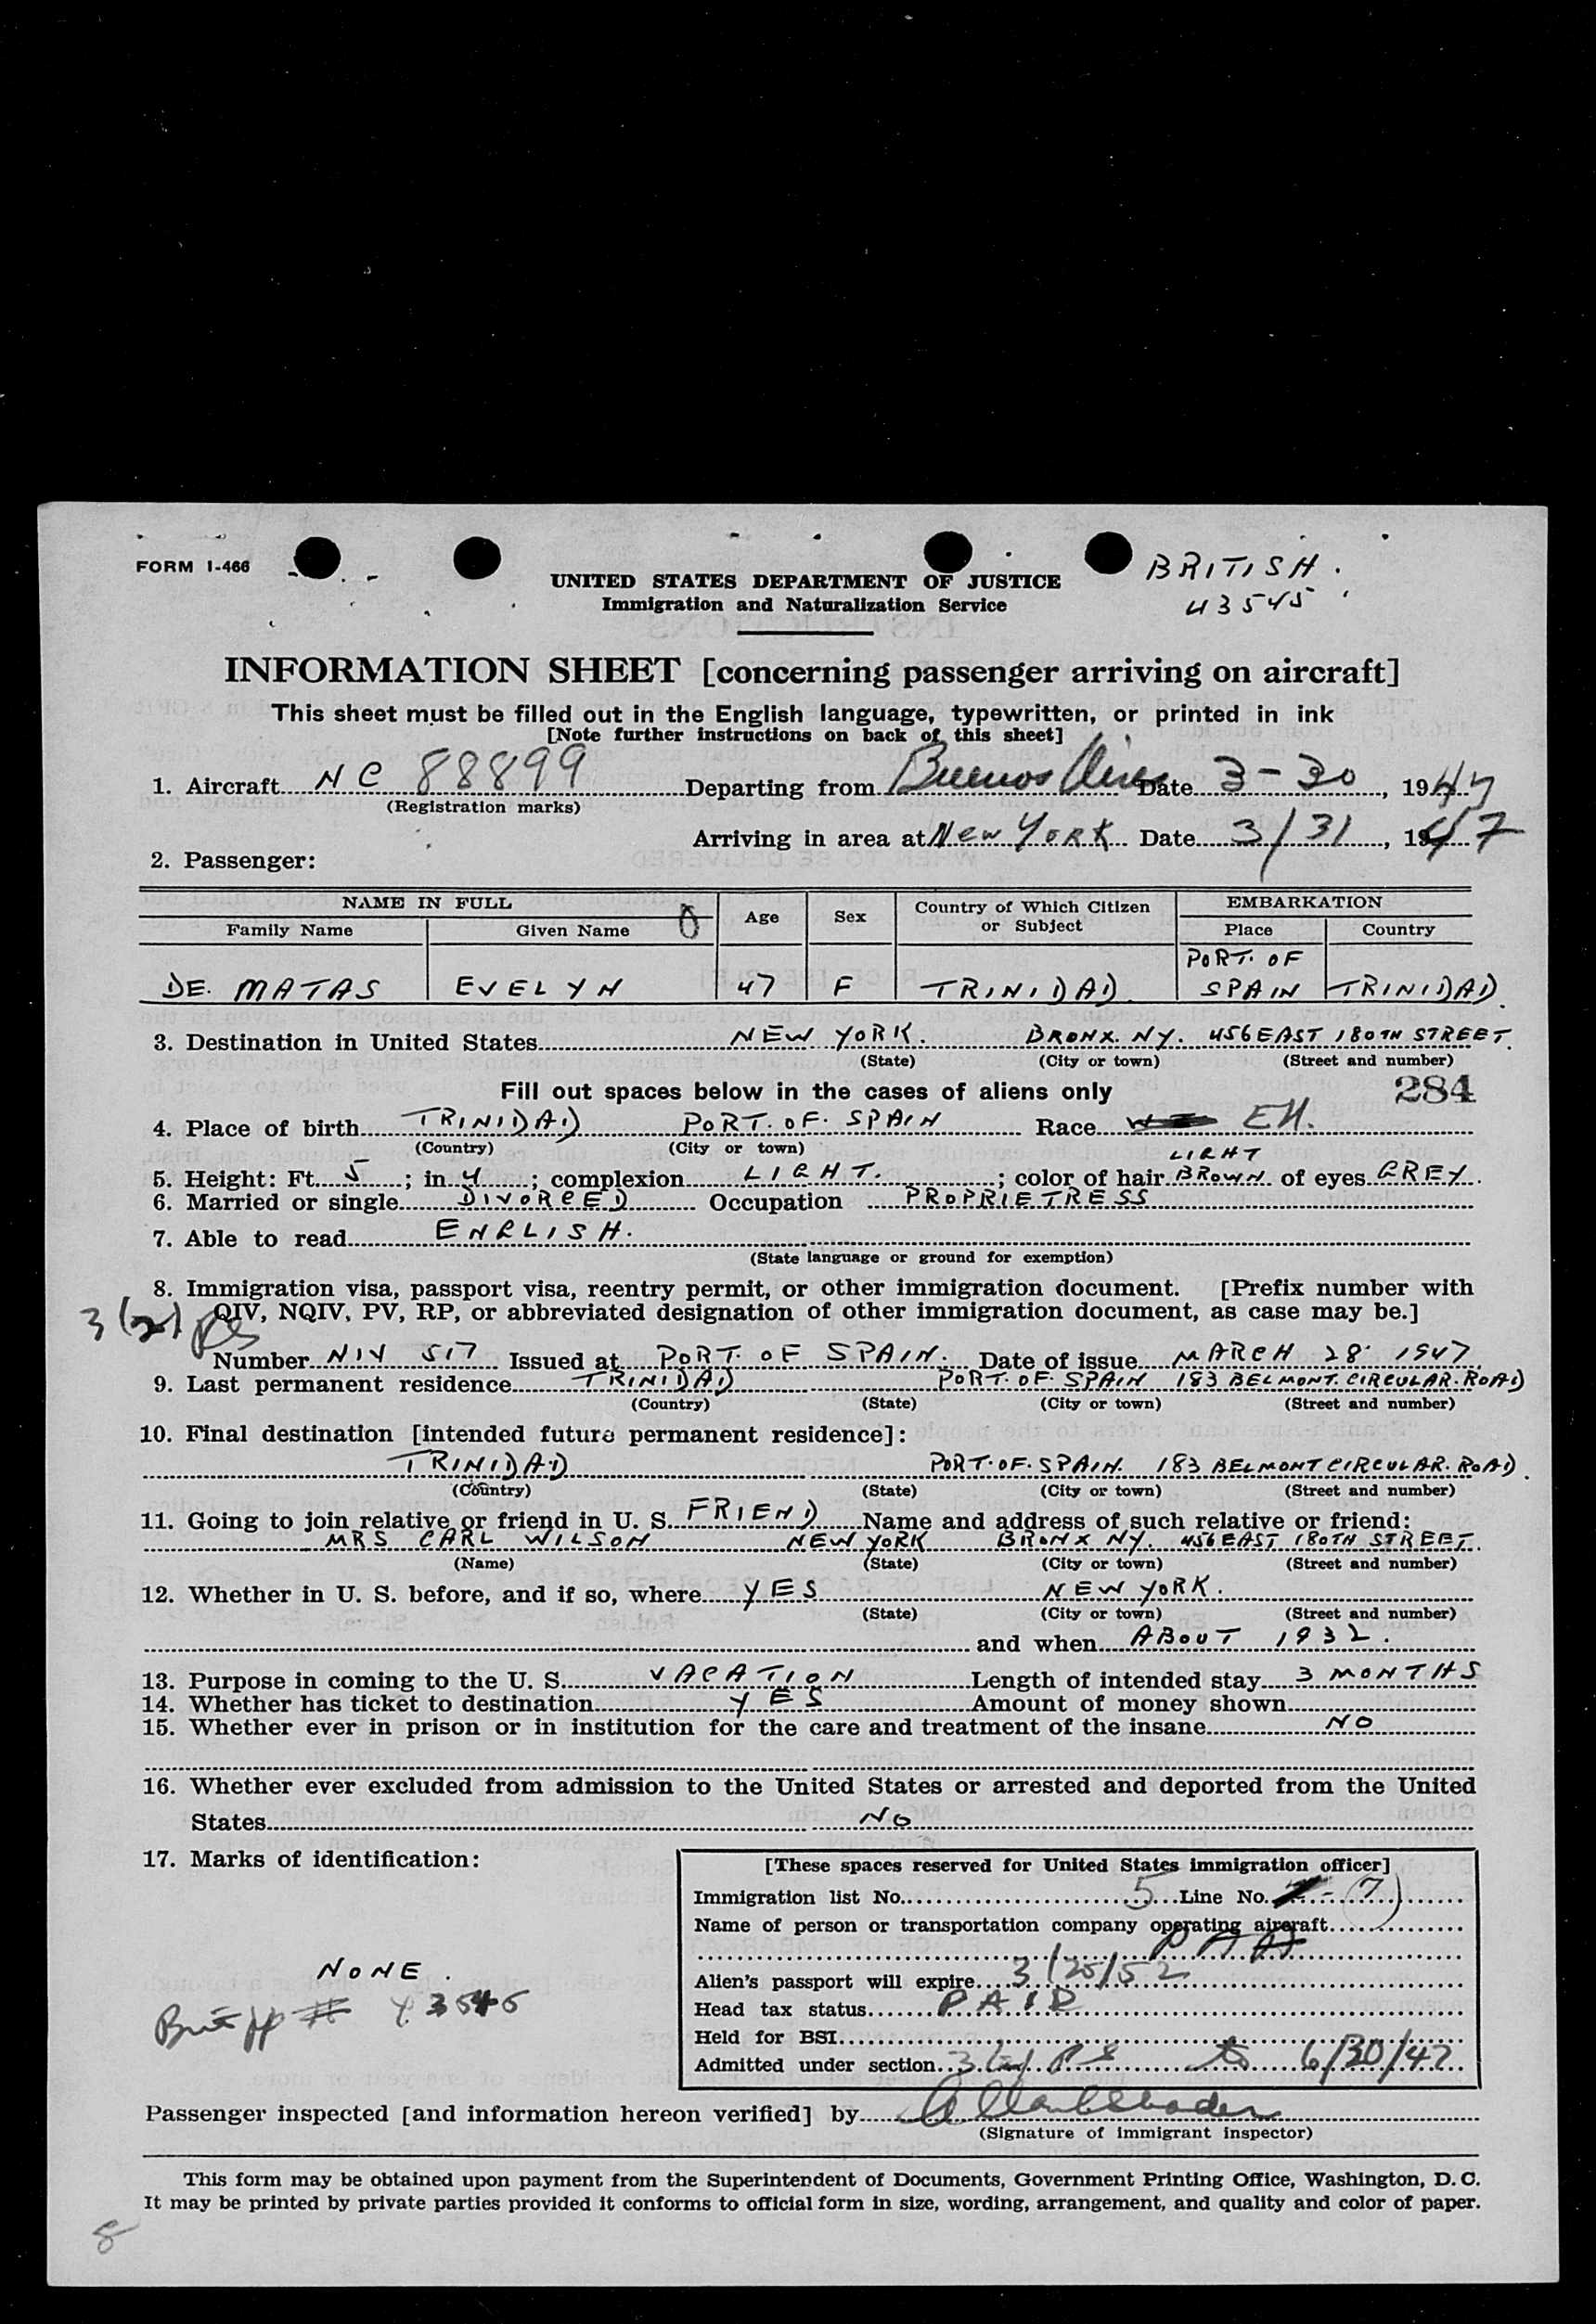 FORM I-466
BRITISH.
43545
UNITED STATES DEPARTMENT OF JUSTICE
Immigration and Naturalization Service
INFORMATION SHEET [concerning passenger arriving on aircraft]
This sheet must be filled out in the English language, typewritten, or printed in ink
[Note further instructions on back of this sheet]
1. Aircraft NC 88899 Departing from Buenos Aires Date 3-30, 1947
(Registration marks)
Arriving in area at New York Date 3/31, 1947
2. Passenger:
NAME IN FULL Age Sex Country of Which Citizen or Subject EMBARKATION
Family Name Given Name Place Country
DE. MATAS EVELYN 47 F TRINIDAD. PORT. OF SPAIN TRINIDAD.
3. Destination in United States NEW YORK. BRONX. NY. 456 EAST 180TH STREET.
(State) (City or town) (Street and number)
Fill out spaces below in the cases of aliens only 284
4. Place of birth TRINIDAD PORT. OF. SPAIN Race EN.
(Country) (City or town)
5. Height: Ft. 5; in. 4; complexion LIGHT.; color of hair LIGHT BROWN. of eyes GREY.
6. Married or single DIVORCED Occupation PROPRIETRESS
7. Able to read ENGLISH.
(State language or ground for exemption)
8. Immigration visa, passport visa, reentry permit, or other immigration document. [Prefix number with
3(2) QIV, NQIV, PV, RP, or abbreviated designation of other immigration document, as case may be.]
Number NIV 517 Issued at PORT. OF SPAIN. Date of issue MARCH 28 1947.
9. Last permanent residence TRINIDAD PORT. OF. SPAIN 183 BELMONT. CIRCULAR. ROAD
(Country) (State) (City or town) (Street and number)
10. Final destination [intended future permanent residence]:
TRINIDAD PORT. OF. SPAIN. 183 BELMONT CIRCULAR. ROAD.
(Country) (State) (City or town) (Street and number)
11. Going to join relative or friend in U. S. FRIEND Name and address of such relative or friend:
MRS CARL WILSON NEW YORK BRONX NY. 456 EAST 180TH STREET.
(Name) (State) (City or town) (Street and number)
12. Whether in U. S. before, and if so, where YES NEW YORK.
(State) (City or town) (Street and number)
and when ABOUT 1932.
13. Purpose in coming to the U. S. VACATION Length of intended stay 3 MONTHS
14. Whether has ticket to destination YES Amount of money shown
15. Whether ever in prison or in institution for the care and treatment of the insane NO
16. Whether ever excluded from admission to the United States or arrested and deported from the United
States NO
17. Marks of identification:
[These spaces reserved for United States immigration officer]
Immigration list No. 5 Line No. 7
Name of person or transportation company operating aircraft
PAA
NONE.
Alien's passport will expire 3/25/52
Brit pp # 43545
Head tax status PAID
Held for BSI
Admitted under section 3(2) to 6/30/47
Passenger inspected [and information hereon verified] by
(Signature of immigrant inspector)
This form may be obtained upon payment from the Superintendent of Documents, Government Printing Office, Washington, D. C.
It may be printed by private parties provided it conforms to official form in size, wording, arrangement, and quality and color of paper.
8